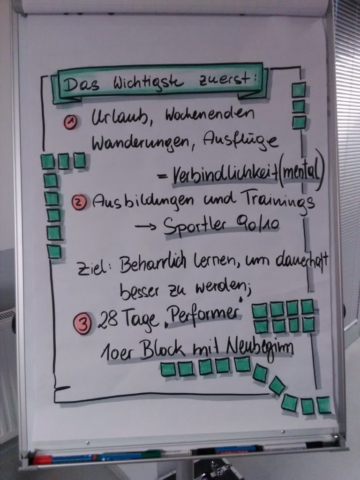 Das Wichtigste zuerst:
1 Urlaub, Wochenenden
Wanderungen, Ausflüge
= Verbindlichkeit (mental)
2 Ausbildungen und Trainings
→ Sportler 90/10
Ziel: Beharrlich lernen, um dauerhaft
besser zu werden;
3 28 Tage "Performer"
10er Block mit Neubeginn